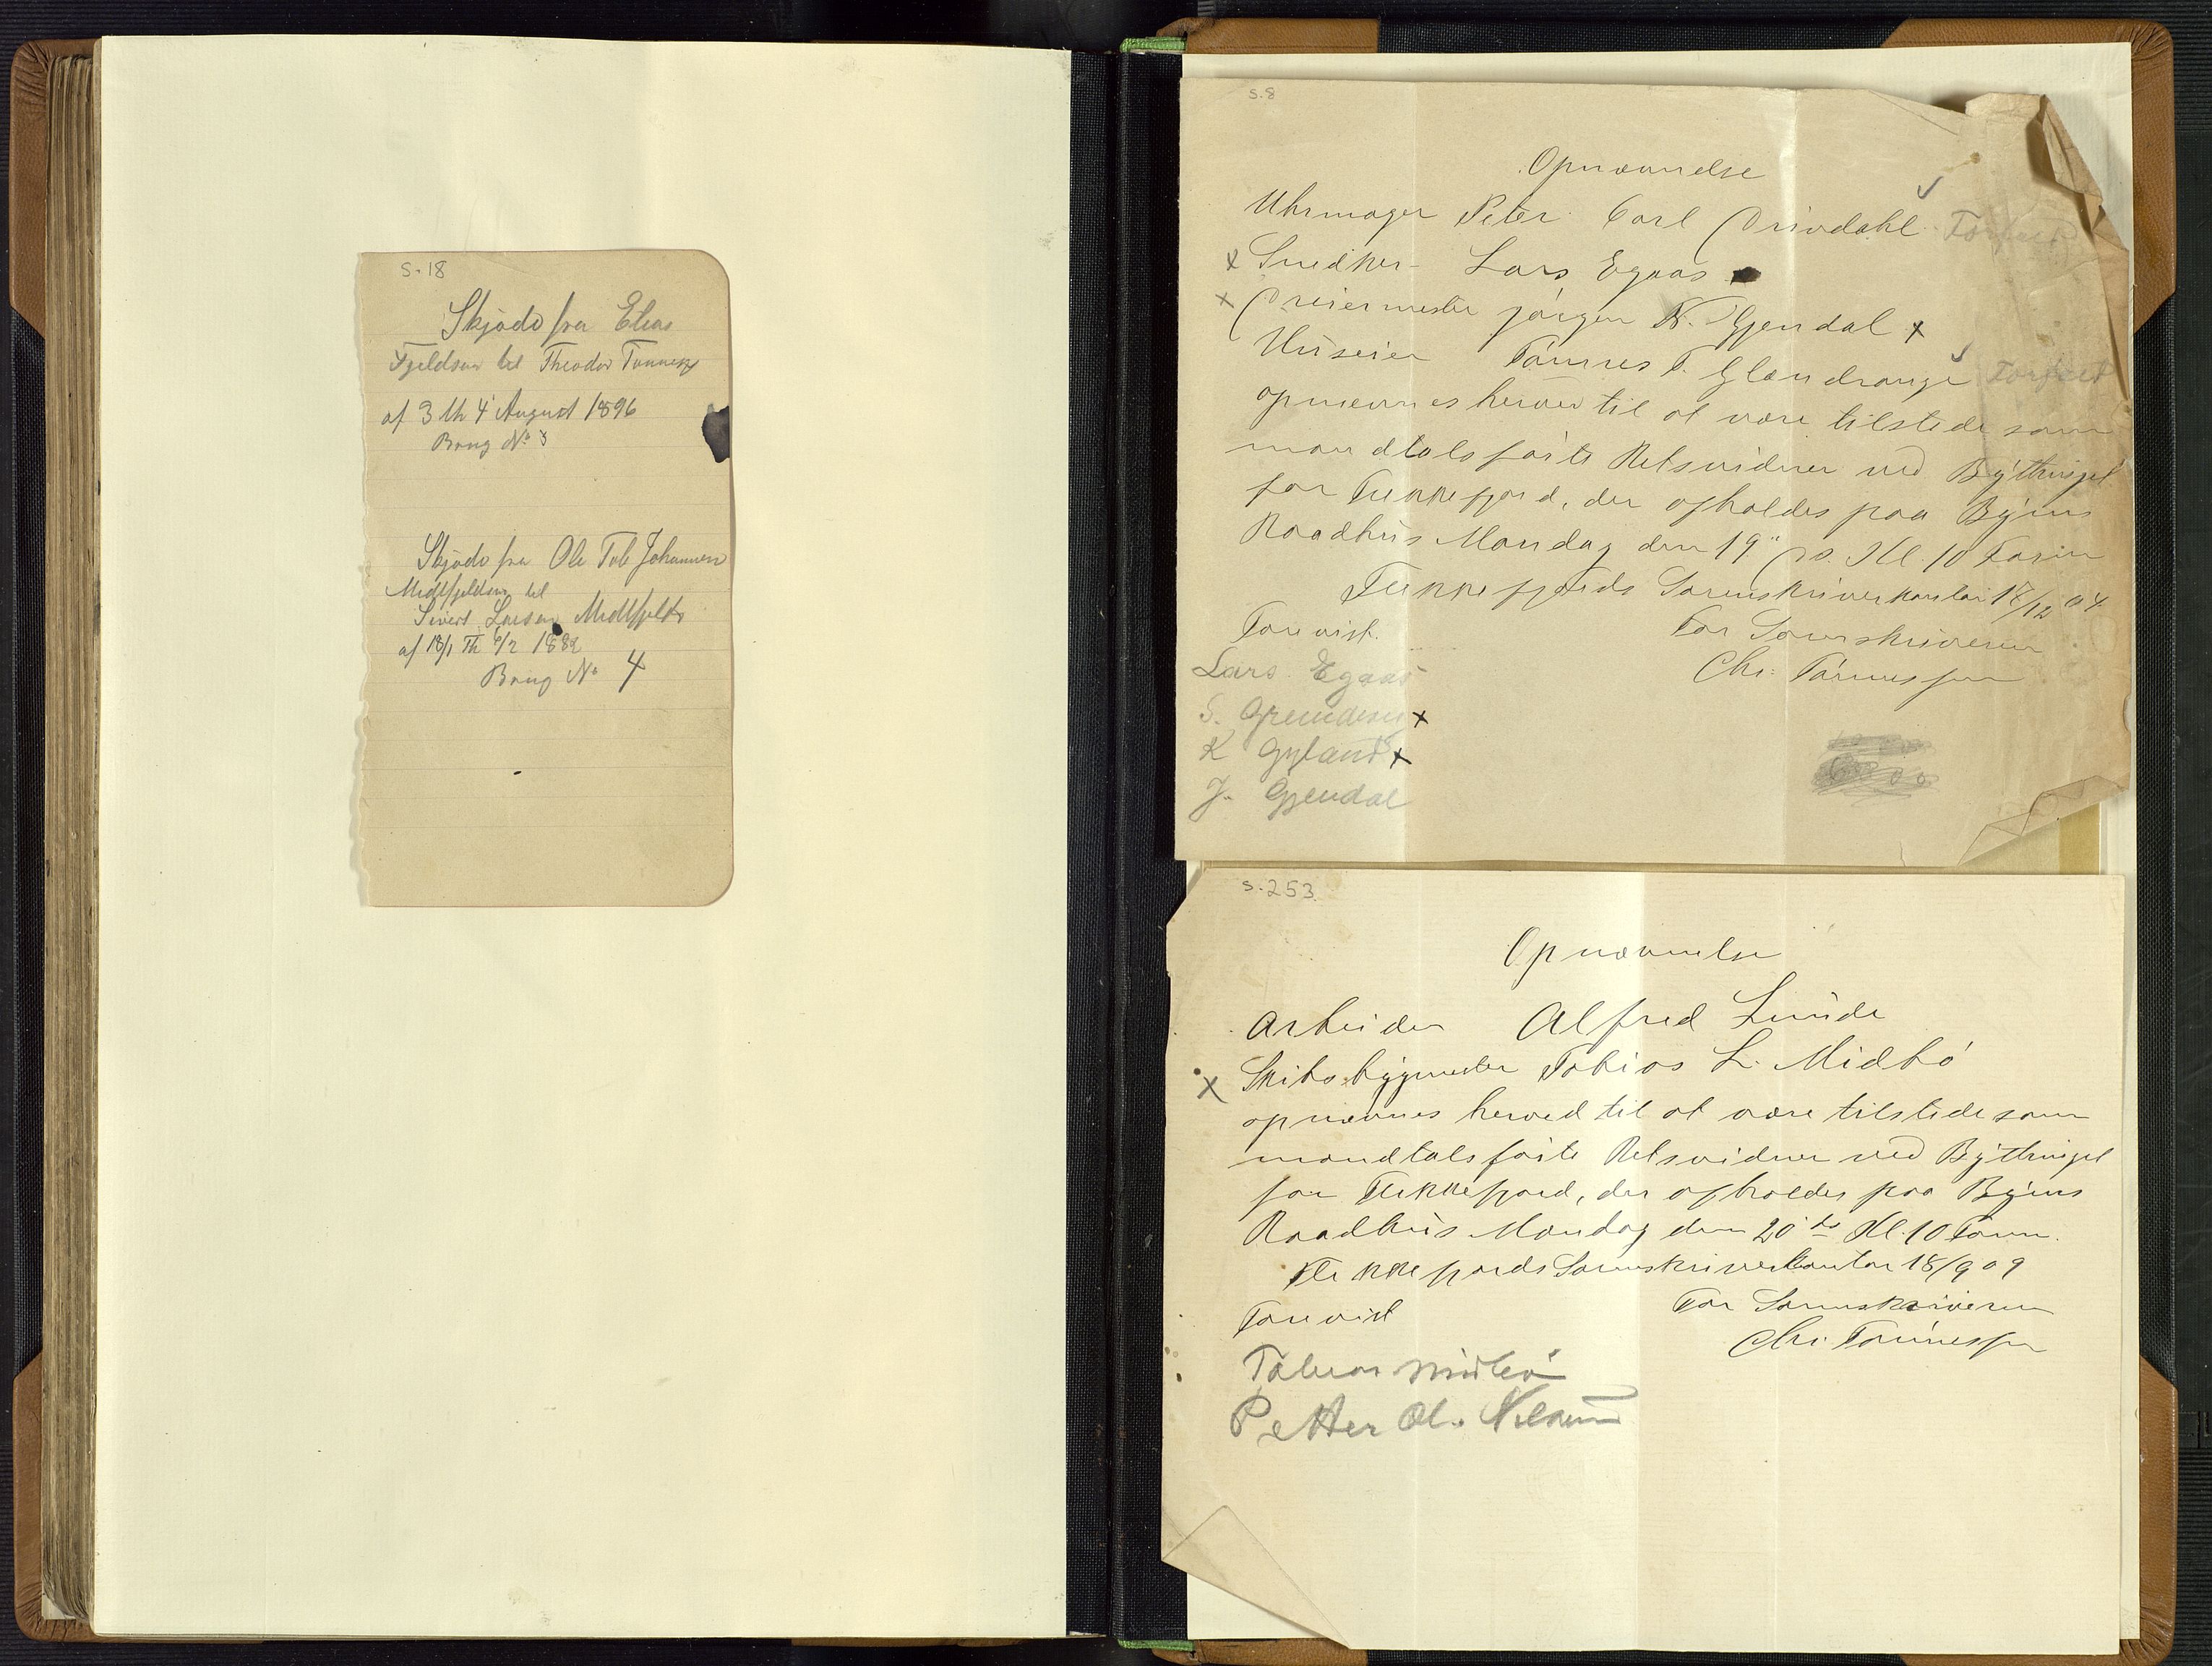 s. 18
Skjøde fra Elias
Fjeldsaa til Theodor Tønnessen
af 3 th 4 August 1896
Brug No 3
Skjøde fra Ole Tob. Johannesen
Midtfjeldsaa til
Sivert Larsen Midtfjeldsaa
af 13/1 Th 6/2 1882
Brug No 4
s. 8
Opnævnelse
Uhrmager Peter Carl Drivdahl
x Snedker Lars Egaas
x Dreiermester Jørgen N. Gjendal x
Huseier Tønnes T. Glendrange
opnævnes herved til at være tilstede som
mandtalsførte Retsvidner ved Bythinget
for Flekkefjord, der afholdes paa Byens
Raadhus Mandag den 19de ds. Kl. 10 Form
Flekkefjords Sorenskriverkontor 18/12 04.
Forevist.
For Sorenskriveren
Chr. Tønnessen
Lars Egaas
S. x
K Gyland x
J. Gjendal
s. 253
Opnævnelse
Arbeider Alfred Lunde
x Skibsbygmester Tobias L. Midbø
opnævnes herved til at være tilstede som
mandtalsførte Retsvidner ved Bythinget
for Flekkefjord, der afholdes paa Byens
Raadhus Mandag den 20 ds Kl. 10 Form.
Flekkefjords Sorenskriverkontor 18/9 09
Forevist
For Sorenskriveren
Chr. Tønnessen
Tobias Midbø
Petter Ol.